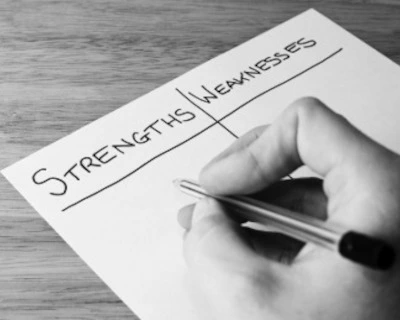 STRENGTHS WEAKNESSES